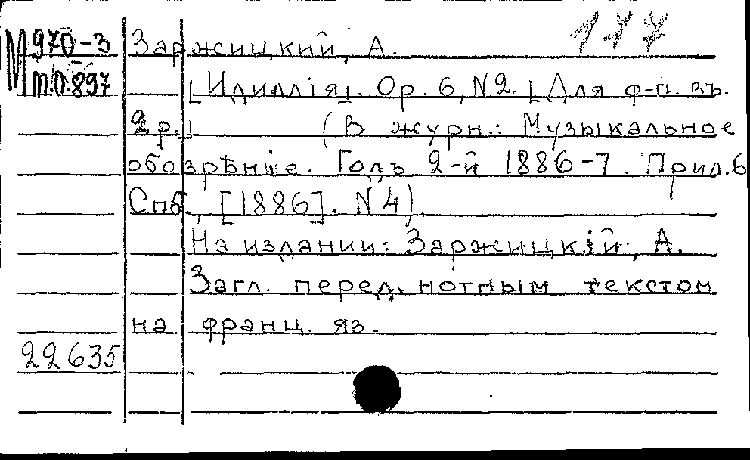 177
М 970-3 Заржицкий, А.
т.п.897 [Идиллія]. Op. 6, N2. [Для ф-п. въ
2 р.] (В журн.: Музыкальное
обозрѣніе. Годъ 2-й 1886-7. Прил. 6
Спб, [1886]. N 4)
На издании: Заржицкій, А.
Загл. перед нотным текстом
на франц. яз.
22635